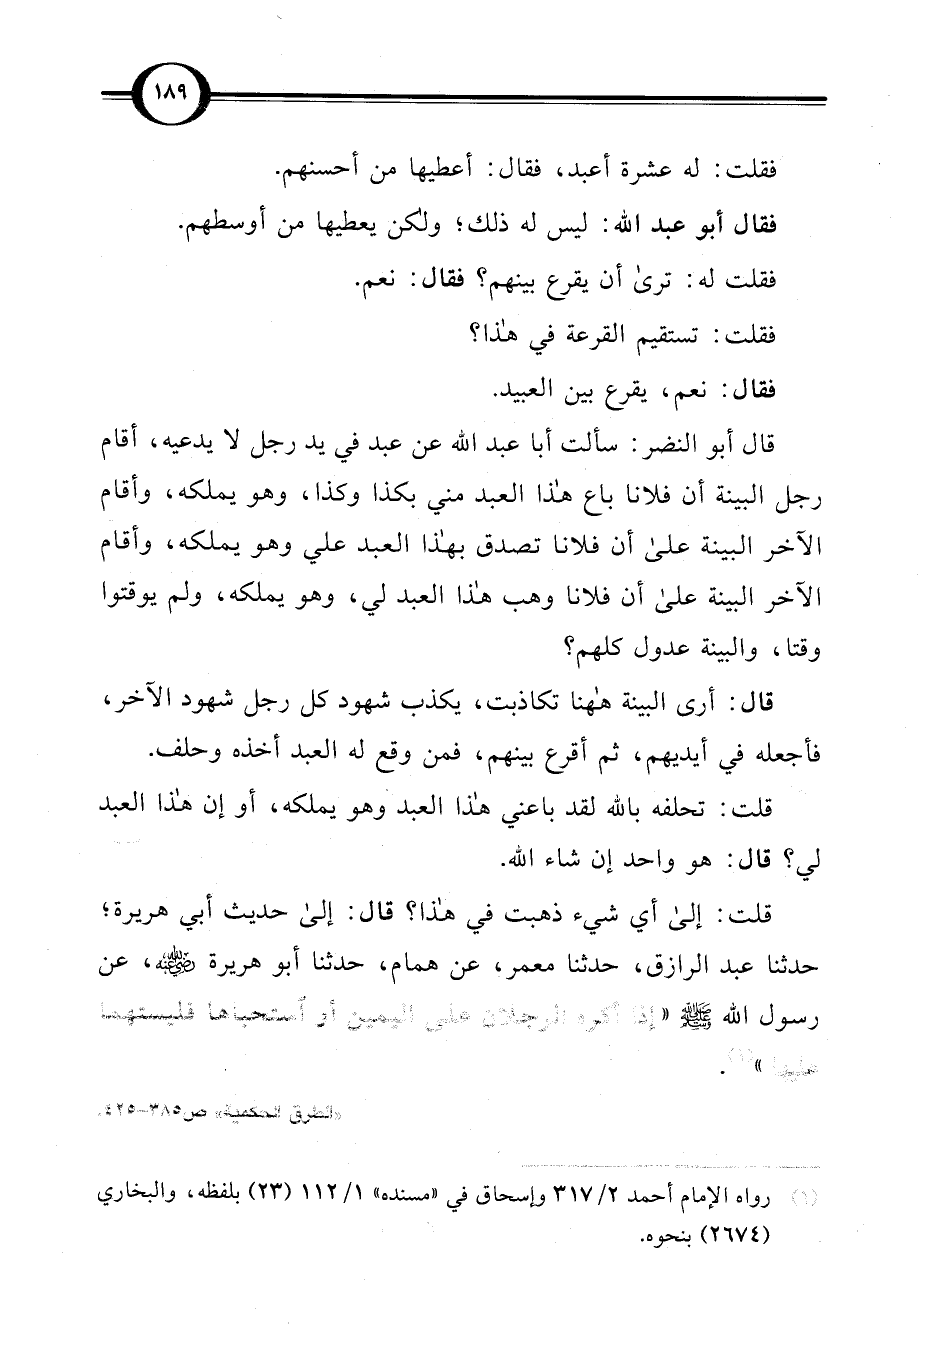 ١٨٩
فقلت: له عشرة أعبد، فقال: أعطيها من أحسنهم.
فقال أبو عبد الله: ليس له ذلك؛ ولكن يعطيها من أوسطهم.
فقلت له: ترىٰ أن يقرع بينهم؟ فقال: نعم.
فقلت: تستقيم القرعة في هٰذا؟
فقال: نعم، يقرع بين العبيد.
قال أبو النضر: سألت أبا عبد الله عن عبد في يد رجل لا يدعيه، أقام
رجل البينة أن فلانا باع هٰذا العبد مني بكذا وكذا، وهو يملكه، وأقام
الآخر البينة علىٰ أن فلانا تصدق بهٰذا العبد علي وهو يملكه، وأقام
الآخر البينة علىٰ أن فلانا وهب هٰذا العبد لي، وهو يملكه، ولم يوقتوا
وقتا، والبينة عدول كلهم؟
قال: أرى البينة هٰهنا تكاذبت، يكذب شهود كل رجل شهود الآخر،
فأجعله في أيديهم، ثم أقرع بينهم، فمن وقع له العبد أخذه وحلف.
قلت: تحلفه بالله لقد باعني هٰذا العبد وهو يملكه، أو إن هٰذا العبد
لي؟ قال: هو واحد إن شاء الله.
قلت: إلىٰ أي شيء ذهبت في هٰذا؟ قال: إلىٰ حديث أبي هريرة؛
حدثنا عبد الرازق، حدثنا معمر، عن همام، حدثنا أبو هريرة رضي الله عنه، عن
رسول الله ﷺ «إذا أكره الرجلان على اليمين أو أستحباها فليستهما
عليها»(١).
«الطرق الحكمية» ص٣٨٥-٤٢٥.
(١) رواه الإمام أحمد ٢/ ٣١٧ وإسحاق في «مسنده» ١/ ١١٢ (٢٣) بلفظه، والبخاري
(٢٦٧٤) بنحوه.